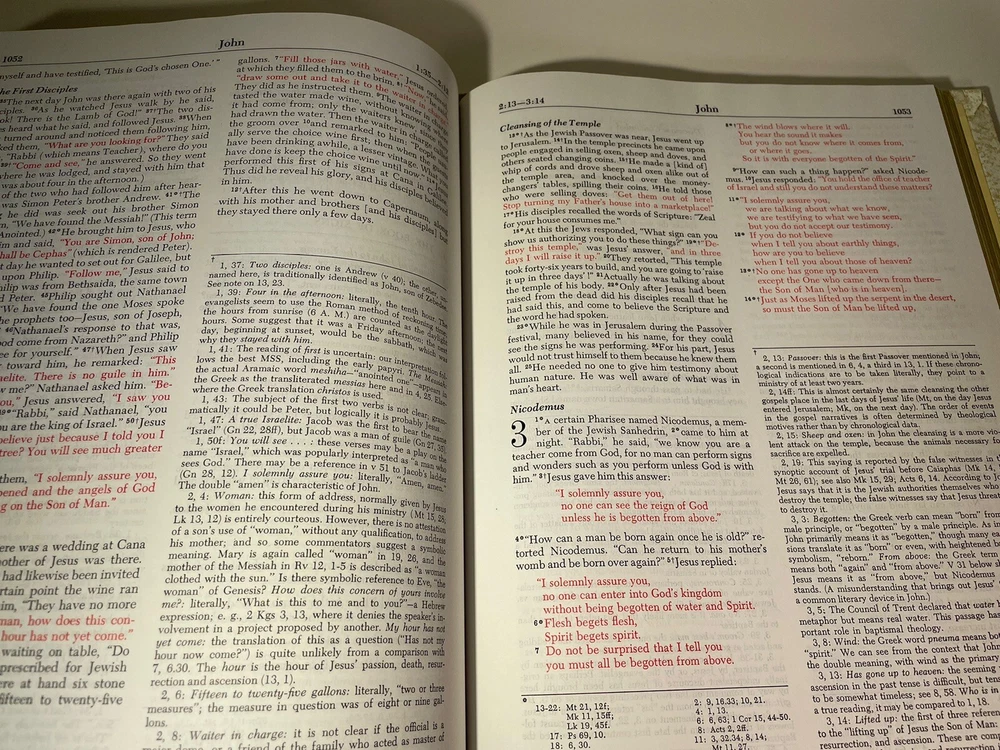 1052
John
1:35—2:1
myself and have testified, 'This is God's chosen One.' "
The First Disciples
The next day John was there again with two of his
disciples. 36As he watched Jesus walk by he said,
"Look! There is the Lamb of God!" 37†The two dis-
heard what he said, and followed Jesus. 38When
turned around and noticed them following him,
asked them, "What are you looking for?" They said
"Rabbi (which means Teacher), where do you
39†"Come and see," he answered. So they went
where he was lodged, and stayed with him that
was about four in the afternoon.)
of the two who had followed him after hear-
was Simon Peter's brother Andrew. 41*†The
he did was seek out his brother Simon
"We have found the Messiah!" (This term
Anointed.) 42*He brought him to Jesus, who
him and said, "You are Simon, son of John;
shall be Cephas" (which is rendered Peter).
day he wanted to set out for Galilee, but
upon Philip. "Follow me," Jesus said to
Philip was from Bethsaida, the same town
Peter. 45Philip sought out Nathanael
"We have found the one Moses spoke
the prophets too—Jesus, son of Joseph,
46Nathanael's response to that was,
good come from Nazareth?" and Philip
see for yourself." 47†When Jesus saw
toward him, he remarked: "This
Israelite. There is no guile in him."
me?" Nathanael asked him. "Be-
you," Jesus answered, "I saw you
"Rabbi," said Nathanael, "you
you are the king of Israel." 50†Jesus
believe just because I told you I
tree? You will see much greater
them, "I solemnly assure you,
opened and the angels of God
on the Son of Man."
There was a wedding at Cana
mother of Jesus was there.
had likewise been invited
certain point the wine ran
him, "They have no more
woman, how does this con-
hour has not yet come."
waiting on table, "Do
prescribed for Jewish
there at hand six stone
fifteen to twenty-five
gallons. 7"Fill those jars with water," Jesus
at which they filled them to the brim. 8
"draw some out and take it to the waiter in
They did as he instructed them. The waiter in
tasted the water made wine, without knowing where
it had come from; only the waiters knew, since they
had drawn the water. Then the waiter in charge called
the groom over 10and remarked to him: "People usu-
ally serve the choice wine first; then when the guests
have been drinking awhile, a lesser vintage. What you
have done is keep the choice wine until now."
performed this first of his signs at Cana in
Thus did he reveal his glory, and his disciples believed
in him.
12†After this he went down to Capernaum, along
with his mother and brothers [and his disciples] but
they stayed there only a few days.
†
1, 37: Two disciples: one is Andrew (v 40); the other, un-
named here, is traditionally identified as John, son of Zebedee.
See note on 13, 23.
1, 39: Four in the afternoon: literally, the tenth hour. The
evangelists seem to use the Roman method of reckoning
the hours from sunrise (6 A. M.) are counted as the
hours. Some suggest that it was a Friday afternoon; the next
day, beginning at sunset, would be the sabbath, which
why they stayed with him.
1, 41: The reading of first is uncertain: our interpretation fol-
lows the best MSS, including the early papyri. The Messiah:
the actual Aramaic word meshiha—"anointed one"—appears in
the Greek as the transliterated messias here and in 4, 25. Else-
where the Greek translation christos is used.
1, 43: The subject of the first two verbs is not clear; gram-
matically it could be Peter, but logically it is probably Jesus.
1, 47: A true Israelite: Jacob was the first to bear the name
"Israel" (Gn 32, 28ff), but Jacob was a man of guile (Gn 27, 35).
1, 50f: You will see . . . : these verses may be a play on the
name "Israel," which was popularly interpreted as "a man who
sees God." There may be a reference in v 51 to Jacob's ladder
(Gn 28, 12). I solemnly assure you: literally, "Amen, amen."
The double "amen" is characteristic of John.
2, 4: Woman: this form of address, normally given by Jesus
to the women he encountered during his ministry (Mt 15, 28;
Lk 13, 12) is entirely courteous. However, there is no attestation
of a son's use of "woman," without any qualification, to address
his mother; and so some commentators suggest a symbolic
meaning. Mary is again called "woman" in 19, 26, and the
mother of the Messiah in Rv 12, 1-5 is described as "a woman
clothed with the sun." Is there symbolic reference to Eve, "the
woman" of Genesis? How does this concern of yours involve
me?: literally, "What is this to me and to you?"—a Hebrew
expression; e. g., 2 Kgs 3, 13, where it denies the speaker's in-
volvement in a project proposed by another. My hour has not
yet come: the translation of this as a question ("Has not my
hour now come?") is quite unlikely from a comparison with
7, 6.30. The hour is the hour of Jesus' passion, death, resur-
rection and ascension (13, 1).
2, 6: Fifteen to twenty-five gallons: literally, "two or three
measures"; the measure in question was of eight or nine gal-
lons.
2, 8: Waiter in charge: it is not clear if the official is a
or a friend of the family who acted as master of
2:13—3:14
John
1053
Cleansing of the Temple
13*†As the Jewish Passover was near, Jesus went up
to Jerusalem. 14†In the temple precincts he came upon
people engaged in selling oxen, sheep and doves, and
others seated changing coins. 15†He made a [kind of]
whip of cords and drove sheep and oxen alike out of
the temple area, and knocked over the money-
changers' tables, spilling their coins. 16He told those
who were selling doves: "Get them out of here!
Stop turning my Father's house into a marketplace!"
17*His disciples recalled the words of Scripture: "Zeal
for your house consumes me."
18*At this the Jews responded, "What sign can you
show us authorizing you to do these things?" 19†"De-
stroy this temple," was Jesus' answer, "and in three
days I will raise it up." 20They retorted, "This temple
took forty-six years to build, and you are going to 'raise
it up in three days'!" 21Actually he was talking about
the temple of his body. 22*Only after Jesus had been
raised from the dead did his disciples recall that he
had said this, and come to believe the Scripture and
the word he had spoken.
23While he was in Jerusalem during the Passover
festival, many believed in his name, for they could
see the signs he was performing. 24For his part, Jesus
would not trust himself to them because he knew them
all. 25He needed no one to give him testimony about
human nature. He was well aware of what was in
man's heart.
Nicodemus
3 1*A certain Pharisee named Nicodemus, a mem-
ber of the Jewish Sanhedrin, 2*came to him at
night. "Rabbi," he said, "we know you are a
teacher come from God, for no man can perform signs
and wonders such as you perform unless God is with
him." 3†Jesus gave him this answer:
"I solemnly assure you,
no one can see the reign of God
unless he is begotten from above."
4*"How can a man be born again once he is old?" re-
torted Nicodemus. "Can he return to his mother's
womb and be born over again?" 5†Jesus replied:
"I solemnly assure you,
no one can enter into God's kingdom
without being begotten of water and Spirit.
6*Flesh begets flesh,
Spirit begets spirit.
7 Do not be surprised that I tell you
you must all be begotten from above.
*
13-22: Mt 21, 12f;
Mk 11, 15ff;
Lk 19, 45f.
17: Ps 69, 10.
18: 6, 30.
2: 9, 16.33; 10, 21.
4: 1, 13.
6: 6, 63; 1 Cor 15, 44-50.
8: Acts 2, 2ff.
11: 3, 32.34; 8, 14;
Mt 11, 27.
8*†The wind blows where it will.
You hear the sound it makes
but you do not know where it comes from,
or where it goes.
So it is with everyone begotten of the Spirit."
9"How can such a thing happen?" asked Nicode-
mus. 10Jesus responded: "You hold the office of teacher
of Israel and still you do not understand these matters?
11*"I solemnly assure you,
we are talking about what we know,
we are testifying to what we have seen,
but you do not accept our testimony.
12* If you do not believe
when I tell you about earthly things,
how are you to believe
when I tell you about those of heaven?
13*†No one has gone up to heaven
except the One who came down from there—
the Son of Man [who is in heaven].
14*†Just as Moses lifted up the serpent in the desert,
so must the Son of Man be lifted up,
2, 13: Passover: this is the first Passover mentioned in John;
a second is mentioned in 6, 4, a third in 13, 1. If these chrono-
logical indications are to be taken literally, they point to a
ministry of at least two years.
2, 14ff: This is almost certainly the same cleansing the other
gospels place in the last days of Jesus' life (Mt, on the day Jesus
entered Jerusalem; Mk, on the next day). The order of events
in the gospel narratives is often determined by theological
motives rather than by chronological data.
2, 15: Sheep and oxen: in John the cleansing is a more vio-
lent attack on the temple, because the animals necessary for
sacrifice are expelled.
2, 19: This saying is reported by the false witnesses in the
synoptic account of Jesus' trial before Caiaphas (Mk 14,
Mt 26, 61); see also Mk 15, 29; Acts 6, 14. According to John
Jesus says that it is the Jewish authorities themselves who
destroy the temple; the false witnesses say that Jesus threatened
to destroy it.
3, 3: Begotten: the Greek verb can mean "born" from
male principle, or "begotten" by a male principle. As in
John primarily means it as "begotten," though many ea
sions translate it as "born" or even, with heightened b
symbolism, "reborn." From above: the Greek term
means both "again" and "from above." V 31 below sh
Jesus means it as "from above," but Jesus' listener
stands. (A misunderstanding that brings out Jesus'
a common literary device in John.)
3, 5: The Council of Trent declared that water
metaphor but means real water. This passage ha
portant role in baptismal theology.
3, 8: Wind: the Greek word pneuma means bo
"spirit." We can see from the context that John
the double meaning, with wind as the primary
3, 13: Has gone up to heaven: the seeming
ascension in the past tense is difficult, but ten
to be somewhat timeless; see 8, 58. Who is in
a true reading, it may be compared to 1, 18.
3, 14: Lifted up: the first of three refere
to the "lifting up" of Jesus the Son of Ma
resurrection, and ascension. These are com